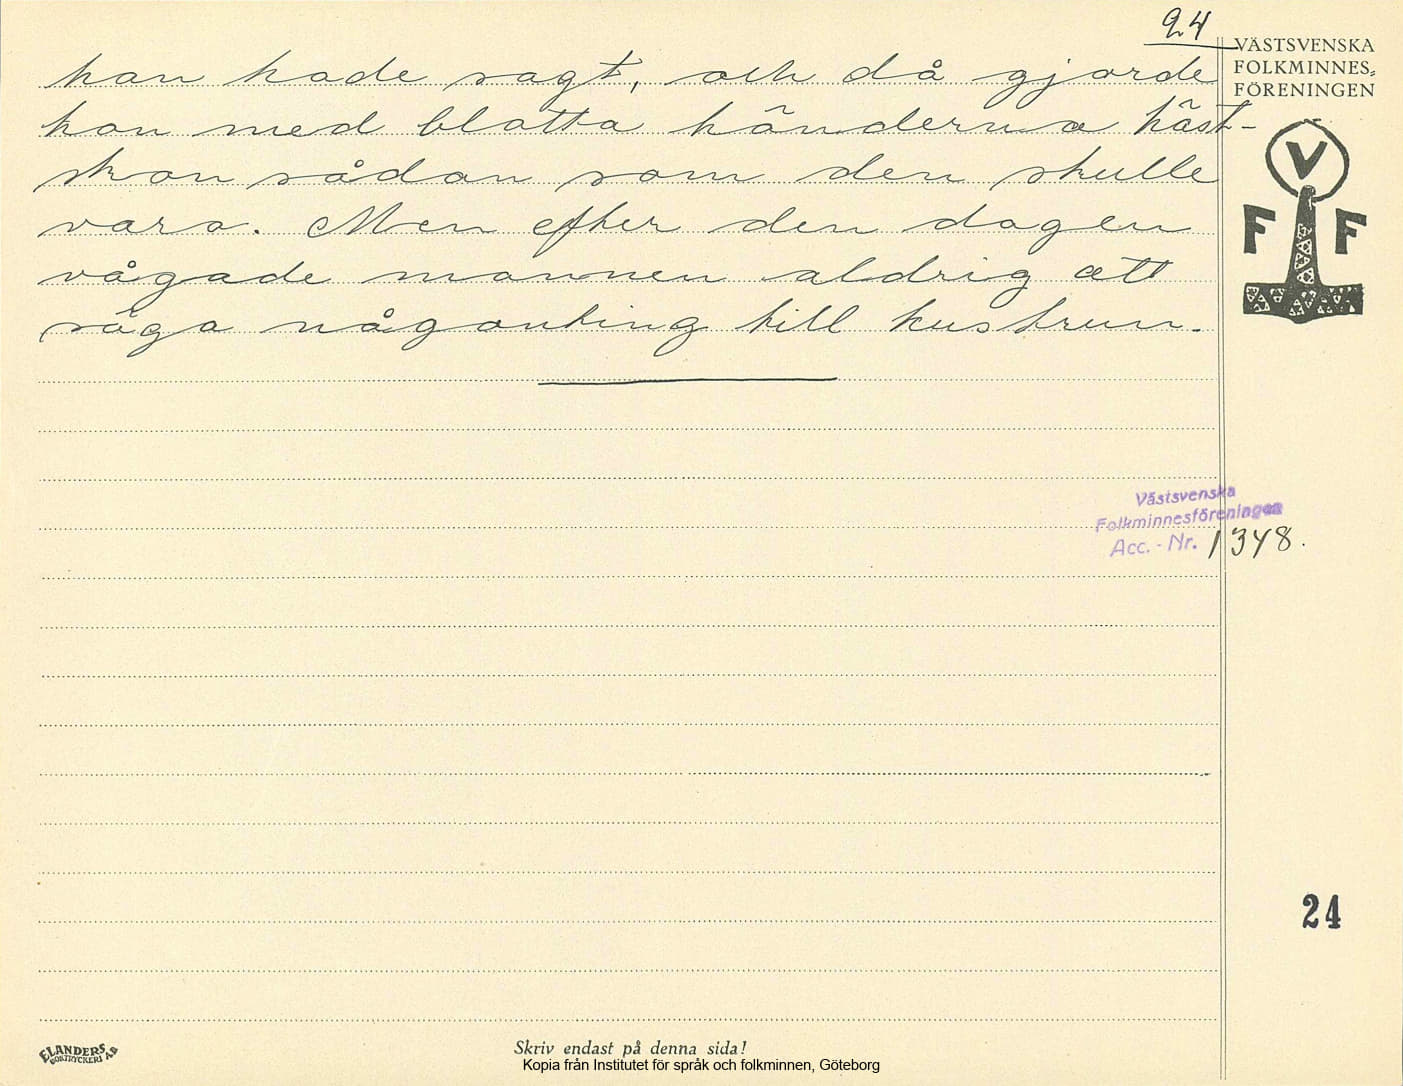 24
VÄSTSVENSKA
FOLKMINNES=
FÖRENINGEN
han hade sagt, och då gjorde
hon med blotta händerna häst-
skon sådan som den skulle
vara. Men efter den dagen
vågade mannen aldrig att
säga någonting till hustrun.
V
F F
Västsvenska
Folkminnesföreningen
Acc. - Nr. 1348.
24
ELANDERS
BOKTRYCKERI A.B
Skriv endast på denna sida!
Kopia från Institutet för språk och folkminnen, Göteborg